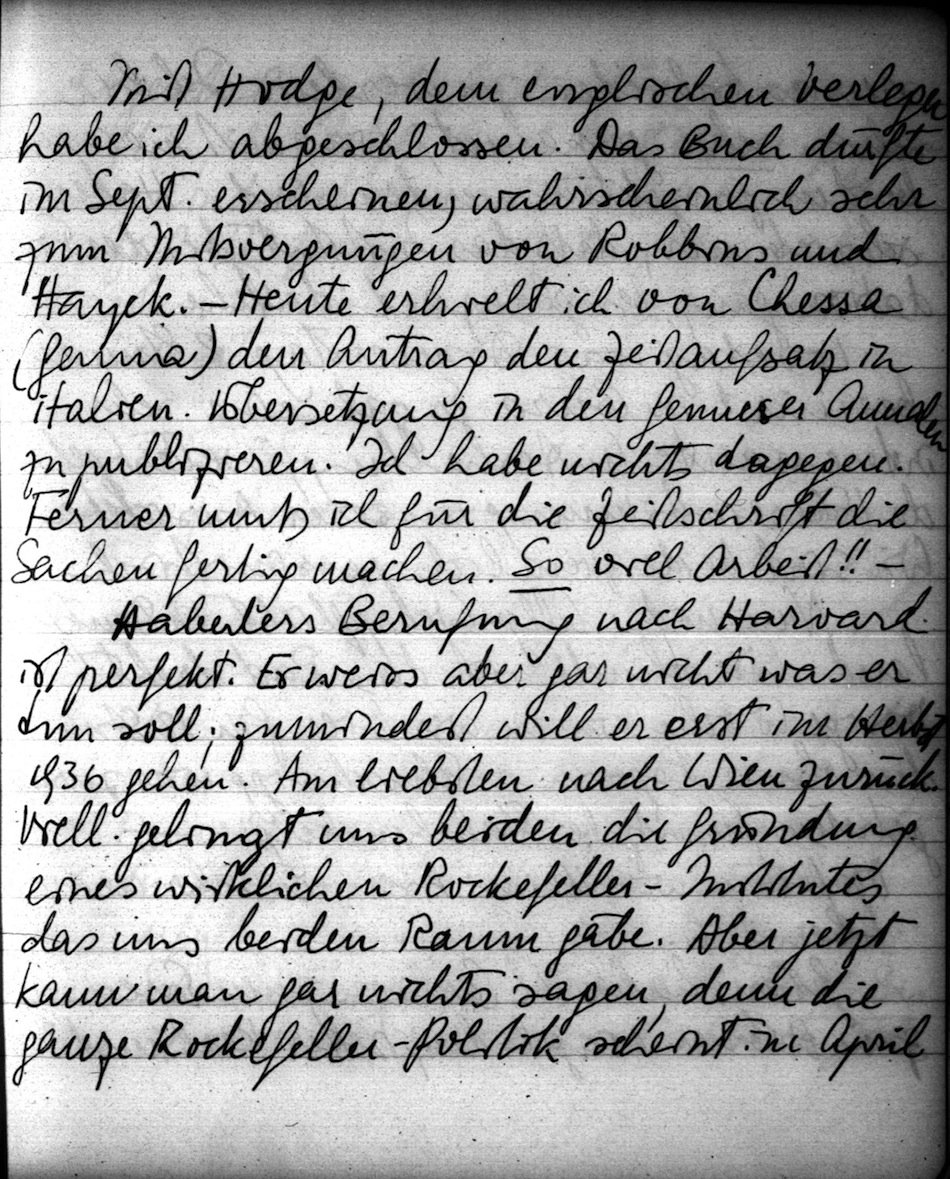 Mit Hodge, dem englischen Verleger
habe ich abgeschlossen. Das Buch dürfte
im Sept. erscheinen, wahrscheinlich sehr
zum Missvergnügen von Robbins und
Hayek. – Heute erhielt ich von Chessa
(Genua) den Antrag den Zeitaufsatz in
italien. Übersetzung in den Genueser Annalen
zu publizieren. Ich habe nichts dagegen.
Ferner muß ich für die Zeitschrift die
Sachen fertig machen. So viel Arbeit!! –
Haberlers Berufung nach Harvard
ist perfekt. Er weiss aber gar nicht was er
tun soll; zumindest will er erst im Herbst
1936 gehen. Am liebsten nach Wien zurück.
Viell. gelingt uns beiden die Gründung
eines wirklichen Rockefeller-Institutes
das uns beiden Raum gäbe. Aber jetzt
kann man gar nichts sagen, denn die
ganze Rockefeller-Politik scheint im April